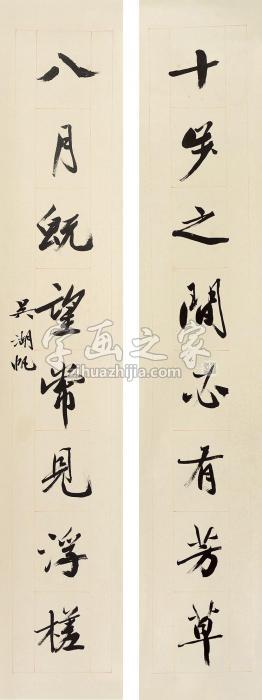 十步之間必有芳草
八月既望常見浮槎
吳湖帆
字画之家
zihuazhijia.com